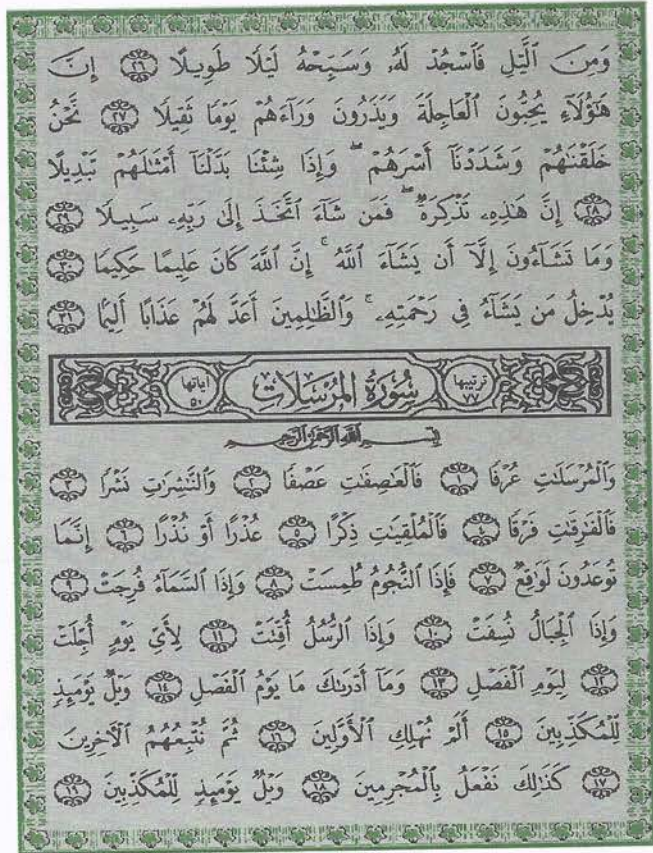 وَمِنَ ٱلَّيْلِ فَٱسْجُدْ لَهُۥ وَسَبِّحْهُ لَيْلًا طَوِيلًا ٢٦ إِنَّ
هَٰٓؤُلَآءِ يُحِبُّونَ ٱلْعَاجِلَةَ وَيَذَرُونَ وَرَآءَهُمْ يَوْمًا ثَقِيلًا ٢٧ نَّحْنُ
خَلَقْنَٰهُمْ وَشَدَدْنَآ أَسْرَهُمْ ۖ وَإِذَا شِئْنَا بَدَّلْنَآ أَمْثَٰلَهُمْ تَبْدِيلًا
٢٨ إِنَّ هَٰذِهِۦ تَذْكِرَةٌ ۖ فَمَن شَآءَ ٱتَّخَذَ إِلَىٰ رَبِّهِۦ سَبِيلًا ٢٩
وَمَا تَشَآءُونَ إِلَّآ أَن يَشَآءَ ٱللَّهُ ۚ إِنَّ ٱللَّهَ كَانَ عَلِيمًا حَكِيمًا ٣٠
يُدْخِلُ مَن يَشَآءُ فِى رَحْمَتِهِۦ ۚ وَٱلظَّٰلِمِينَ أَعَدَّ لَهُمْ عَذَابًا أَلِيمًا ٣١
ترتيبها ٧٧ سُورَةُ المُرْسَلَاتِ آياتها ٥٠
بِسْمِ ٱللَّهِ ٱلرَّحْمَٰنِ ٱلرَّحِيمِ
وَٱلْمُرْسَلَٰتِ عُرْفًا ١ فَٱلْعَٰصِفَٰتِ عَصْفًا ٢ وَٱلنَّٰشِرَٰتِ نَشْرًا ٣
فَٱلْفَٰرِقَٰتِ فَرْقًا ٤ فَٱلْمُلْقِيَٰتِ ذِكْرًا ٥ عُذْرًا أَوْ نُذْرًا ٦ إِنَّمَا
تُوعَدُونَ لَوَٰقِعٌ ٧ فَإِذَا ٱلنُّجُومُ طُمِسَتْ ٨ وَإِذَا ٱلسَّمَآءُ فُرِجَتْ ٩
وَإِذَا ٱلْجِبَالُ نُسِفَتْ ١٠ وَإِذَا ٱلرُّسُلُ أُقِّتَتْ ١١ لِأَىِّ يَوْمٍ أُجِّلَتْ
١٢ لِيَوْمِ ٱلْفَصْلِ ١٣ وَمَآ أَدْرَىٰكَ مَا يَوْمُ ٱلْفَصْلِ ١٤ وَيْلٌ يَوْمَئِذٍ
لِّلْمُكَذِّبِينَ ١٥ أَلَمْ نُهْلِكِ ٱلْأَوَّلِينَ ١٦ ثُمَّ نُتْبِعُهُمُ ٱلْءَاخِرِينَ
١٧ كَذَٰلِكَ نَفْعَلُ بِٱلْمُجْرِمِينَ ١٨ وَيْلٌ يَوْمَئِذٍ لِّلْمُكَذِّبِينَ ١٩